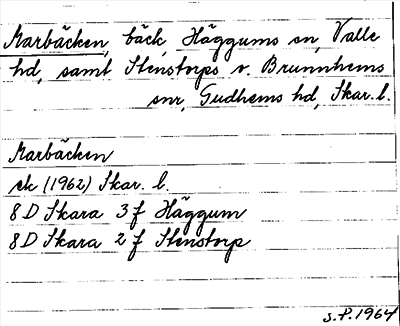 Marbäcken, bäck, Häggums sn, Valle
hd, samt Stenstorps o. Brunnhems
snr, Gudhems hd, Skar. l.
Marbäcken
ek (1962) Skar. l.
8 D Skara 3 f Häggum
8 D Skara 2 f Stenstorp
S.P. 1964